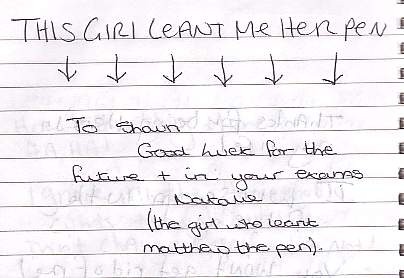 THIS GIRL LEANT Me Her PEN
To Shaun
Good luck for the
future + in your exams
Natalie
(the girl who leant
matthew the pen).